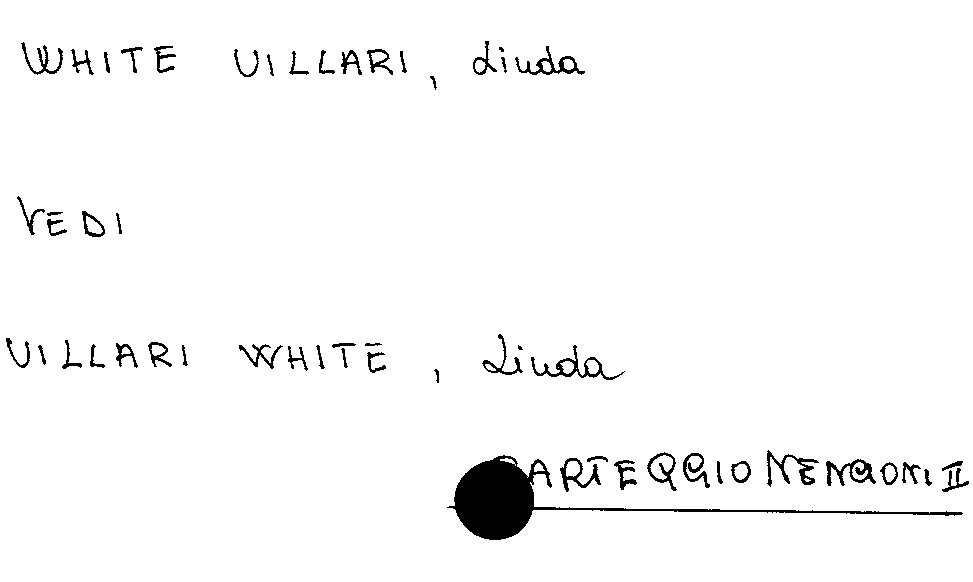 WHITE VILLARI, Linda
VEDI
VILLARI WHITE, Linda
CARTEGGIO NENCIONI II